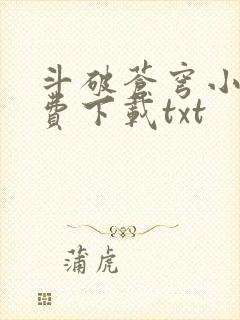 斗破蒼穹小
費下載txt
蒲虎